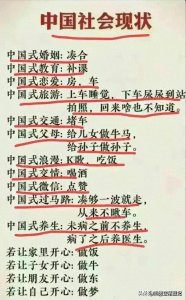 中国社会现状
中国式婚姻: 凑合
中国式教育: 补课
中国式恋爱: 房, 车
中国式旅游: 上车睡觉, 下车尿尿到站
拍照, 回来啥也不知道。
中国式交通: 堵车
中国式父母: 给儿女做牛马,
给孙子做孙子。
中国式浪漫: K歌, 吃饭
中国式友情: 喝酒
中国式微信: 点赞
中国式过马路: 凑够一波就走,
从来不瞅车。
中国式养生: 未病之前不养生,
病了之后养医生。
若让家里开心: 做饭
若让子女开心: 做牛
若让朋友开心: 做东
若让自己开心: 做梦